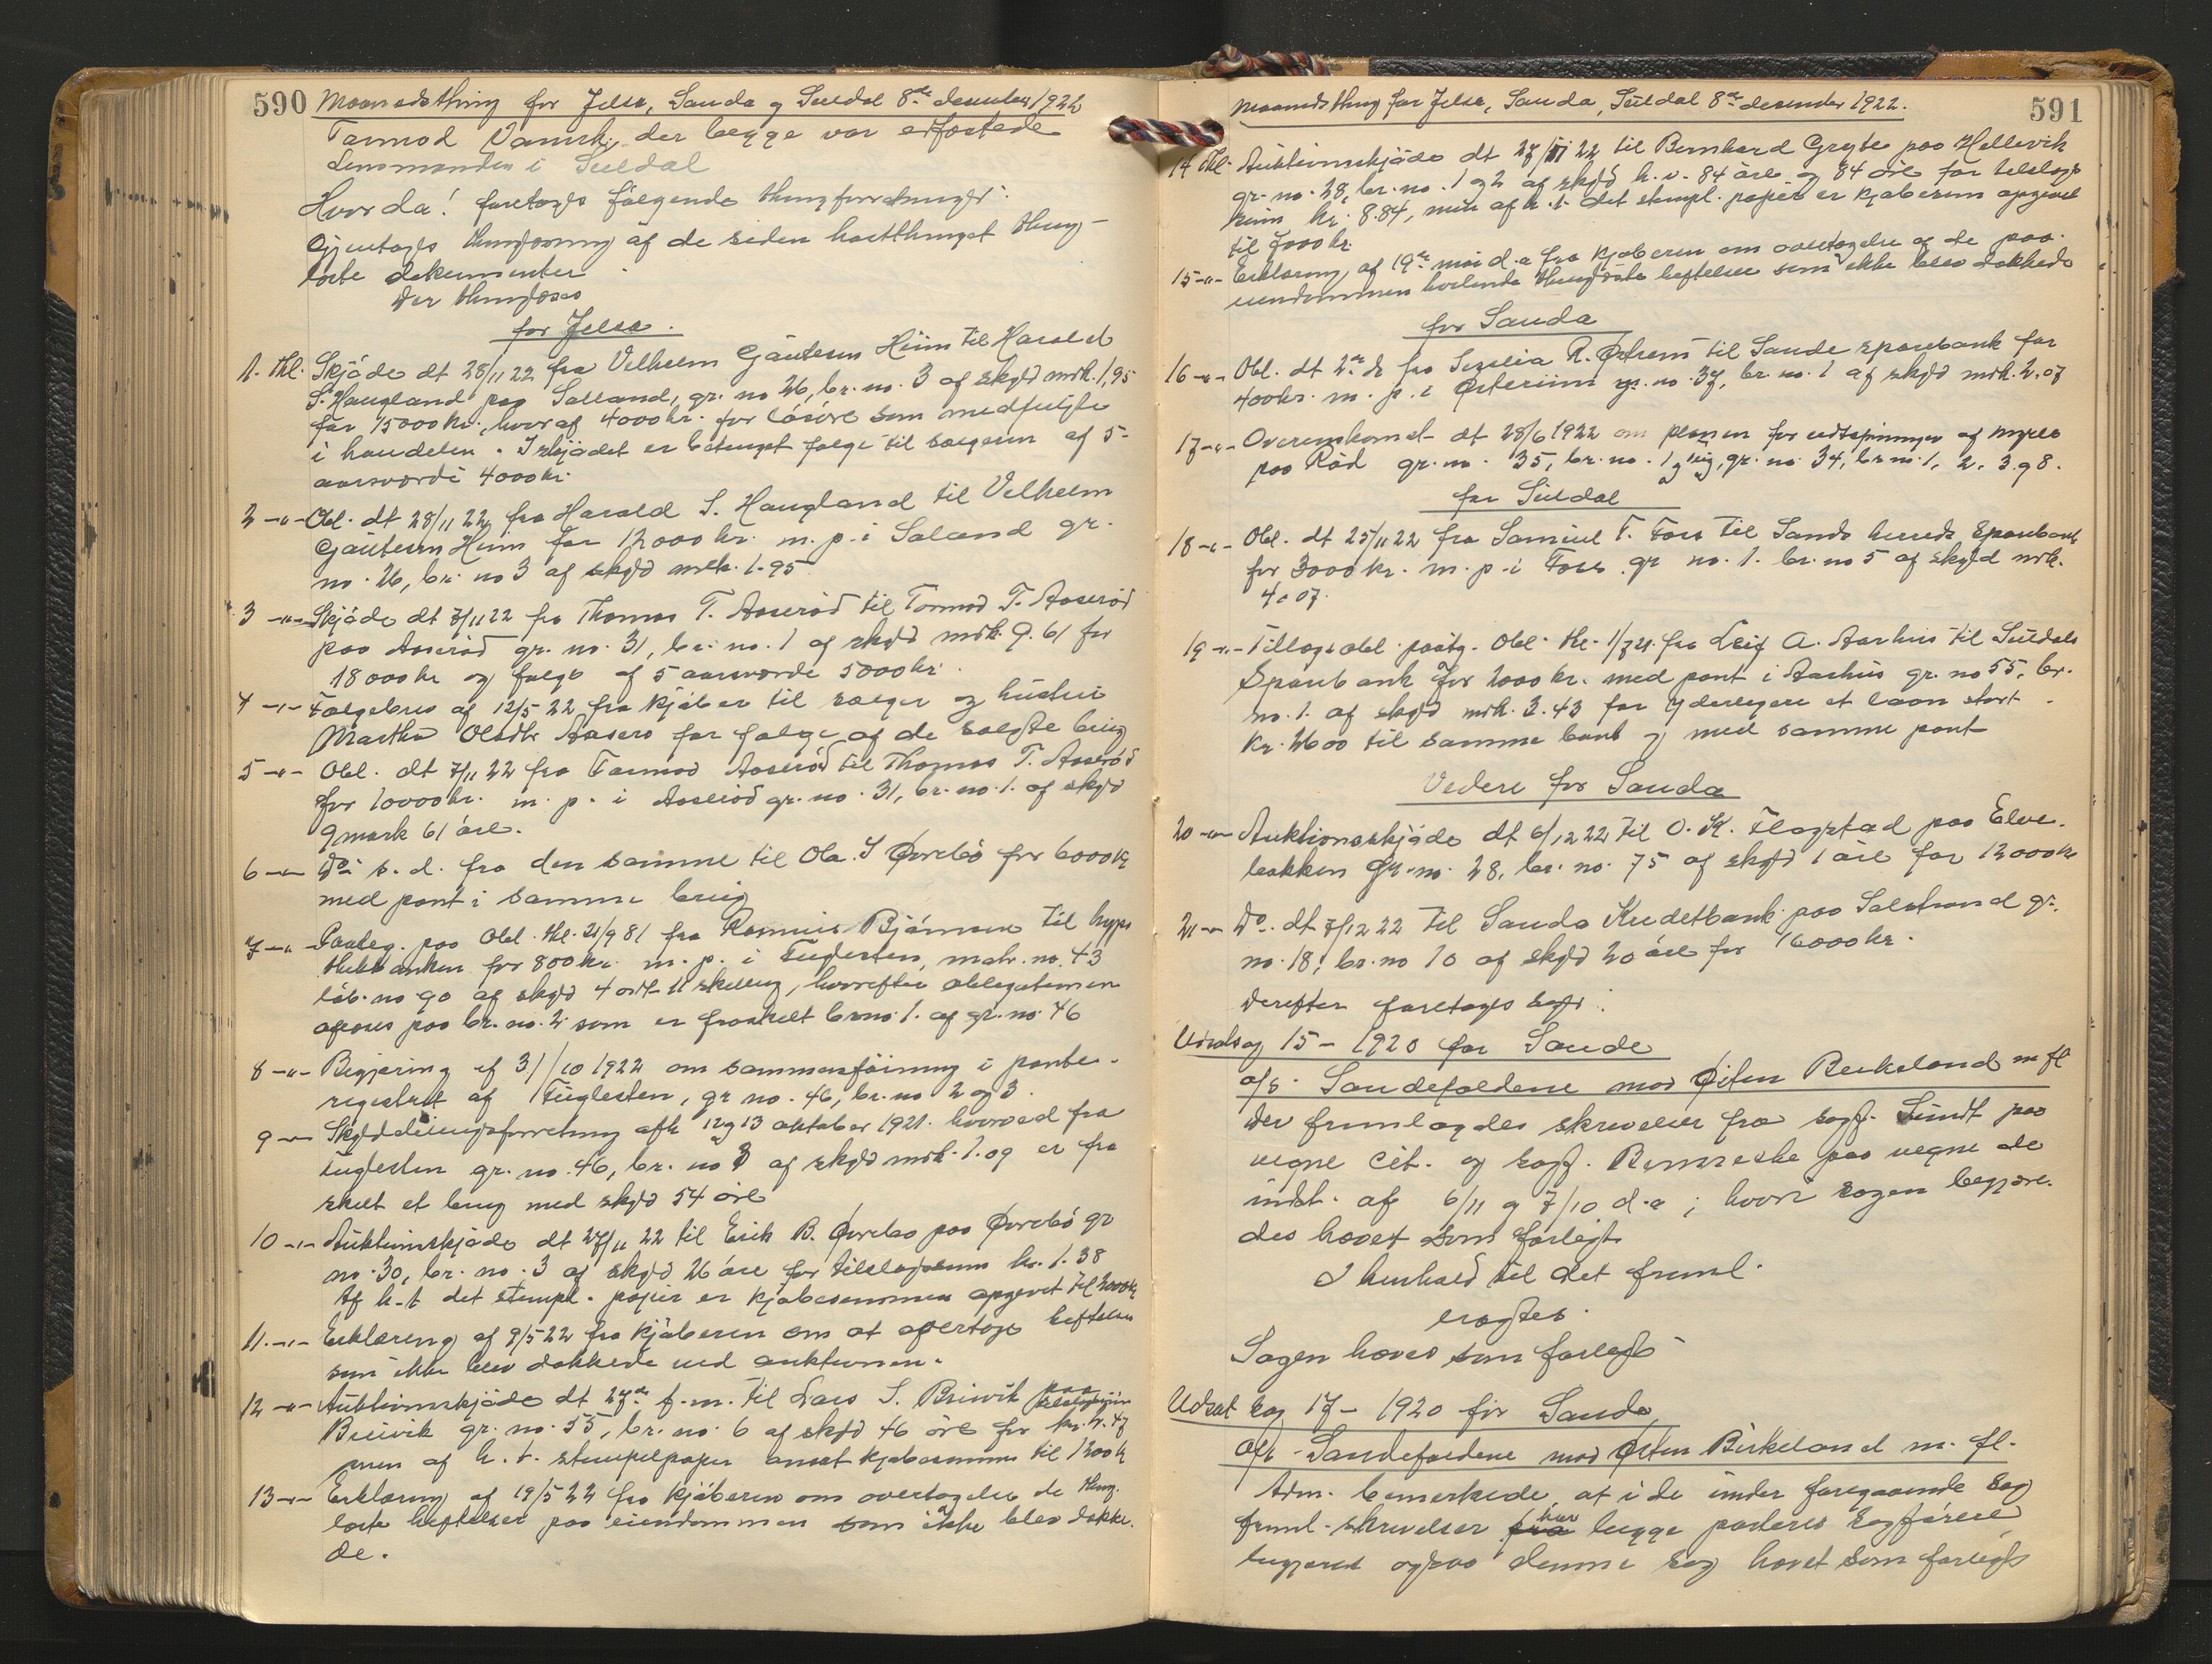 590 Maanedsthing for Jelsa, Sauda og Suldal 8de desember 1922
Tormod Vanvik, der begge var edfæstede
Lensmanden i Suldal
Hvorda! foretages følgende thingforretninger:
Gjentages thinglæsning af de siden høstthinget thing-
læste dokumenter
Der thinglæses
for Jelsa.
1. thl. Skjøde dt 28/11 22 fra Velhelm Gautesen Hiim til Harald
S. Haugland paa Salland, gr. no 26, br. no. 3 af skyld mrk. 1,95
for 15000 kr., hvoraf 4000 kr. for løsøre som medfulgte
i handelen. I skjødet er betinget folge til sælgeren af 5-
aarsværdi 4000 kr.
2 -"- Obl. dt 28/11 22 fra Harald S. Haugland til Velhelm
Gautesen Hiim for 12000 kr. m. p. i Saland gr.
no. 26, br. no 3 af skyld mrk. 1.95
3 -"- Skjøde dt 7/11 22 fra Thomas T. Aaserød til Tormod T. Aaserød
paa Aaserød gr. no. 31, br. no. 1 af skyld mrk. 9.61 for
18000 kr og folge af 5 aarsværde 5000 kr.
4 -"- Følgebrev af 12/5 22 fra kjøber til sælger og hustru
Martha Olsdtr Aaserø for folge af de solgte brug
5 -"- Obl. dt 7/11 22 fra Tormod Aaserød til Thomas T. Aaserød
for 10000 kr. m. p. i Aaserød gr. no. 31, br. no. 1. af skyld
9 mark 61 øre.
6 -"- Do s. d. fra den samme til Ola I Øvrebø for 6000 kr
med pant i samme brug
7 -"- Paateg. paa Obl. thl. 21/9 81 fra Rasmus Bjørnsen til hypo
thekbanken for 800 kr. m. p. i Fuglesten, matr. no. 43
løb. no 90 af skyld 4 ort 11 skilling, hvorefter obligationen
aflæses paa br. no. 2 som er fraskilt br no. 1. af gr. no 46
8 -"- Begjæring af 31/10 1922 om sammenføining i pante-
registret af Fuglesten, gr no. 46, br. no 2 og 3.
9 -"- Skylddelingsforretning afh 12 og 13 oktober 1921. hvorved fra
Fuglesten gr. no. 46, br. no 3 af skyld mrk. 1.09 er fra
skilt et brug med skyld 54 øre
10 -"- Auktionsskjøde dt 27/11 22 til Erik B. Øvrebø paa Øvrebø gr
no. 30, br. no. 3 af skyld 26 øre for tilslagssum kr. 1.38
Af h. t det stempl. papir er kjøbesummen opgivet til 2000 kr
11. -"- Erklæring af 9/5 22 fra kjøberen om at overtage heftelser
som ikke blev dækkede ved auktionen.
12 -"- Auktionsskjøde dt 27de f. m. til Lars S. Breivik paa
Breivik gr. no. 55, br. no. 6 af skyld 46 øre for kr. 2.47
men af h. t. stempelpapir ansat kjøbesummen til 1200 kr
13 -"- Erklæring af 19/5 22 fra kjøberen om overtagelse de thing-
læste heftelser paa eiendommen som ikke blev dække-
de.
Maanedsthing for Jelsa, Sauda, Suldal 8de desember 1922. 591
14 thl. Auktionsskjøde dt 27/11 22 til Bernhard Gryte paa Hellevik
gr. no. 28, br. no. 1 og 2 af skyld h. v. 84 øre og 84 øre for tilslags
sum kr. 8.84, men af h. t. det stempl. papir er kjøbesum opgivet
til 7000 kr.
15 -"- Erklæring af 19de mai d. a fra kjøberen om overtagelse af de paa
eiendommen hvilende thinglæste heftelser som ikke blev dækkede
for Sauda
16 -"- Obl. dt 2de ds fra Sezelia R. Østrem til Saude sparebank for
400 kr. m. p. i Østerim gr. no. 37, br. no. 1 af skyld mrk. 2.07
17 -"- Overenskomst dt 28/6 1922 om planen for udtapninger af myrer
paa Rød gr. no. 35, br. no. 1 og gr. no 34, br no. 1, 2, 3 og 8.
for Suldal
18 -"- Obl. dt 25/11 22 fra Samuel T. Foss til Sands herreds Sparebank
for 3000 kr. m. p. i Foss gr no. 1. br. no 5 af skyld mrk.
4.07.
19 -"- Tillægsobl. paatg. Obl. thl. 1/7 21. fra Leif A. Aarhus til Suldals
Sparebank for 2000 kr. med pant i Aarhus gr. no 55, br.
no. 1. af skyld mrk. 3.43 for yderligere et laan stort
Kr. 2600 til samme bank og med samme pant
Videre for Sauda
20 -"- Auktionsskjøde dt 6/12 22 til O. K. Flogstad paa Elve-
bakken gr. no. 28, br. no. 75 af skyld 1 øre for 12000 kr
21 -"- Do. dt 7/12 22 til Sauda Kreditbank paa Solstrand gr.
no. 18, br. no 10 af skyld 20 øre for 16000 kr.
Derefter foretages sagf.
Udsat sag 15 - 1920 for Saude
afs. Saudefaldene mod Østen Birkeland m fl
Der fremlagdes skrivelser fra sagf. Sundt paa
vegne cit. og sagf. paa vegne de
indst. af 6/11 og 7/10 d. a ; hvori sagen begjære-
des hævet som forligt
I henhold til det freml.
eragtes.
Sagen hæves som forligt
Udsat sag 17 - 1920 for Saude
Afs. Saudefaldene mod Østen Birkeland m. fl.
Adm. bemerkede at i de under foregaaende sag
freml. skrivelser har begge parters sagførere
begjæret ogsaa denne sag hævet som forligt